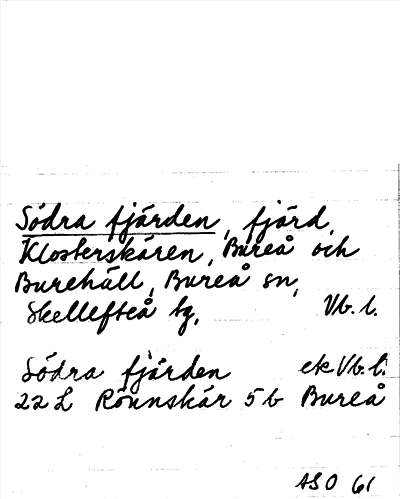 Södra fjärden, fjärd,
Klosterskären, Bureå och
Burehäll, Bureå sn,
Skellefteå tg, Vb. l.
Södra fjärden ek Vb. l:
22 L Rönnskär 5 b Bureå
ASO 61